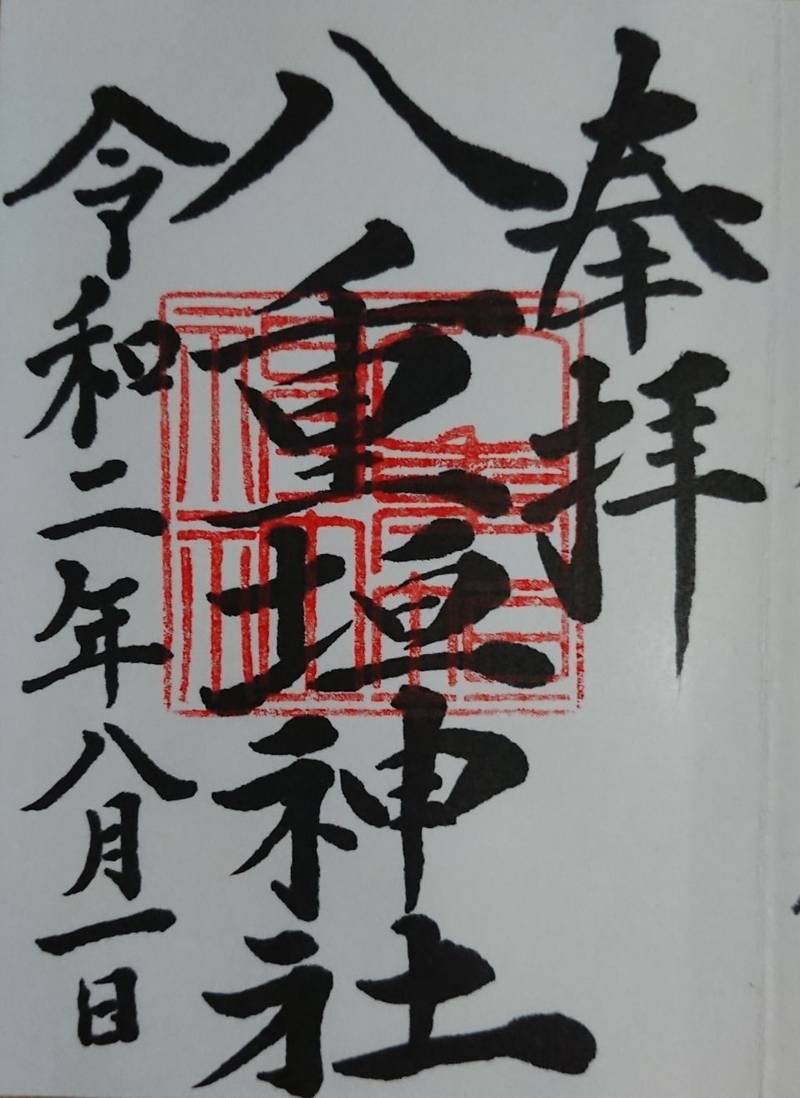 奉拝
八重垣神社
令和二年八月一日